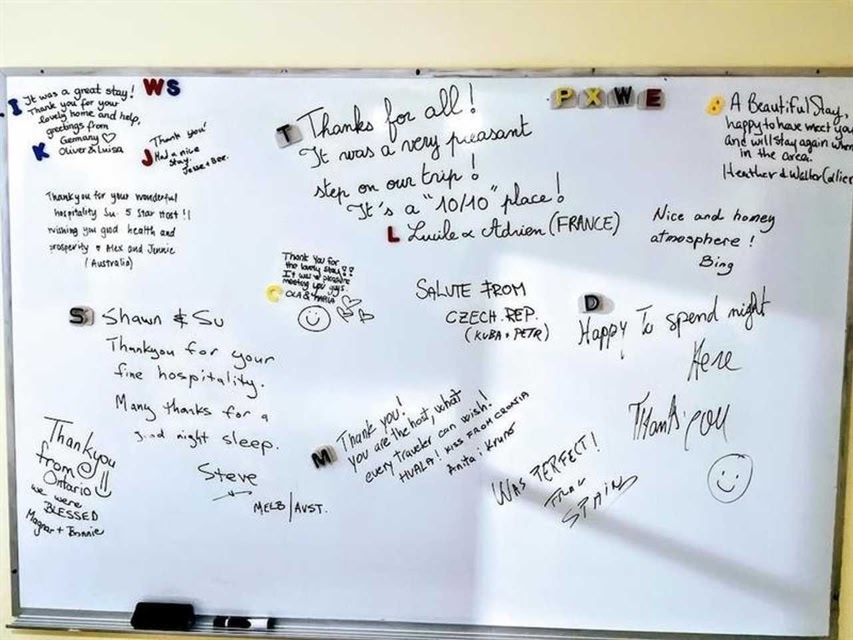 I
It was a great stay!
Thank you for your
lovely home and help,
greetings from
Germany ♡
Oliver & Luisa
K
W S
Thank you!
J Had a nice
stay.
Jesse + Bee.
T
Thanks for all!
It was a very pleasant
step on our trip!
It's a "10/10" place!
L Lucile & Adrien (FRANCE)
P X W E
8 A Beautiful Stay,
happy to have meet you
and will stay again when
in the area.
Heather & Walter
Thank you for your wonderful
hospitality Su. 5 Star Host!!
wishing you good health and
prosperity Alex and Jennie
(Australia)
Thank you for
the lovely stay!!
It was a pleasure
meeting you guys.
C OLA &
Nice and homey
atmosphere!
Bing
SALUTE FROM
CZECH.REP.
(KUBA + PETR)
D
Happy To spend night
Here
Thank you
S Shawn & Su
Thankyou for your
fine hospitality.
Many thanks for a
good night sleep.
Steve
MELB/AUST.
M Thank you!
You are the host, what
every traveler can wish!
HVALA! KISS FROM CROATIA
Anita i Kruno
WAS PERFECT!
FROM
SPAIN
Thankyou
from
Ontario
we were
BLESSED
Magnar + Bonnie